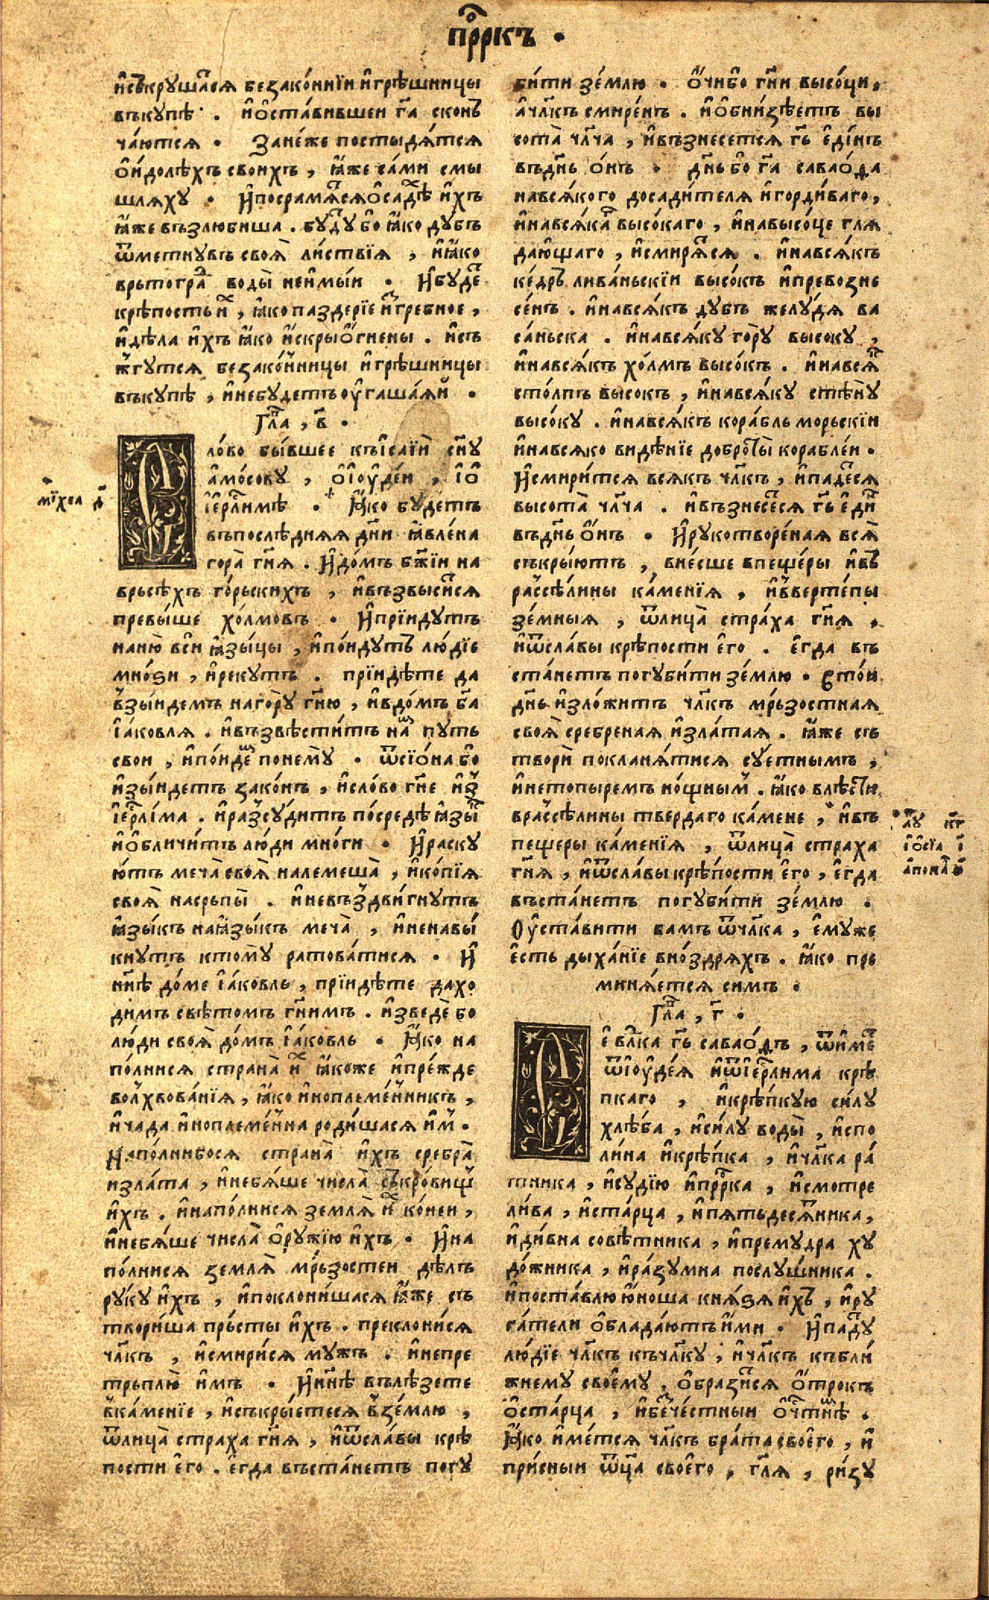 прⷪ҇ркъ ·
исъкрꙋша́ся беззако́ннїи и҆грѣ́шницы
въкꙋпѣ · и҆ѻ҆ста́вившеи гⷭ҇а скон
ча́ются · Зане́же постыдѧ́тся
ѻ҆и҆до́лѣхъ свои́хъ , ꙗ҆́же са́ми смы
шля́хꙋ · И҆посрамѧ́тсяѻ҆садѣ́ и҆́хъ
ꙗ҆́же възлюби́ша · бꙋ́дꙋ бо ꙗ҆́ко дꙋ́бъ
ѿметнꙋ́въ своѧ̀ ли́ствїя , и҆ꙗ҆́ко
врътогра́ воды̀ неи҆мы́и · И҆бꙋ́де
крѣ́пость и҆́ , ꙗ҆́ко паздерїе и҆згре́бное ,
и҆дѣла и҆́хъ ꙗ҆́ко и҆́скрыѻ҆́гнены · и҆съ
жгꙋ́тся беззако́нницы и҆грѣ́шницы
въкꙋ́пѣ , и҆небꙋ́детъ оу҆гаша́яи ·
Гла̀ , в҃ ·
Сло́во бы́вшее къі҆са́їи сн҃ꙋ
а҆мо́совꙋ , ѻ҆і҆оу҆де́и , і҆ѻ҆
і҆ерⷭ҇ли́мѣ · Ꙗ҆́ко бꙋ́детъ
въпослѣ́дняя дни ꙗ҆вле́на
гора̀ гн҃я · И҆до́мъ бж҃їи на
връсѣ́хъ го́рьскихъ , и҆възвы́сится
превы́ше хо́лмовъ · И҆прїи́дꙋтъ
наню̀ вси ꙗ҆зы́цы , и҆по́идꙋтъ лю́дїе
мно́ѕи , и҆рекꙋ́тъ · прїидѣ́те да
взы́идемъ нагорꙋ̀ гн҃ю , и҆вдо́мъ бг҃а
і҆а́ковля · и҆възвѣсти́тъ на́ пꙋть
свои , и҆по́иде понемꙋ̀ · ѿсїѻ́на бо
и҆зы́идетъ зако́нъ , и҆сло́во гн҃е и҆з
і҆ерⷭ҇ли́ма · И҆разсꙋ́дитъ по́средѣ ꙗ҆зы́
и҆ѻ҆бличи́тъ лю́ди мно́ги · И҆раскꙋ
ю́тъ меча̀ своѧ̀ нале́меша , и҆ко́пїя
своѧ̀ насрьпы̀ · и҆невъздви́гнꙋтъ
ꙗ҆зы́къ наꙗ҆зы́къ меча̀ , и҆ненавы́
кнꙋтъ ктомꙋ̀ ратова́тися · И҆
нн҃ѣ до́ме і҆а́ковль , прїидѣ́те дахо́
димъ свѣ́томъ гн҃имъ · и҆зведе́ бо
лю́ди своѧ̀ до́мъ і҆а́ковль · Ꙗ҆́ко на
по́лнися страна̀ и҆́ ꙗ҆́коже и҆пре́жде
волхвова́нїя , ꙗ҆́ко и҆ноплеме́нникъ ,
и҆ча́да и҆ноплеме́нна роди́шася и҆́м ·
На́полнибося страна̀ и҆́хъ сребра̀
и҆зла́та , и҆небя́ше числа̀ съкро́вищ
и҆́хъ · и҆напо́лнися земля̀ и҆́ ко́неи ,
и҆небя́ше числа̀ ѻ҆рꙋ́жїю и҆́хъ · И҆на
по́лнися земля̀ мрьзостеи дѣ́лъ
рꙋкꙋ и҆́хъ , и҆поклони́шася ꙗ҆́же съ
твори́ша прьсты и҆́хъ · преклони́ся
чл҃къ , и҆смири́ся мꙋжъ · и҆непре
трьплю̀ и҆мъ · И҆нн҃ѣ вълѣ́зете
вка́менїе , и҆съкры́етеся взе́млю ,
ѿлица̀ страха гн҃я , и҆ѿсла́вы крѣ́
пости є҆го · є҆гда въста́нетъ погꙋ
би́ти зе́млю · ѻ҆́чибо гн҃и высо́ци ,
а҆чл҃къ смире́нъ · и҆ѻ҆бни́зѣетъ вы
сота̀ чл҃ча , и҆възнесется гь҃ є҆ди́нъ
въдн҃ь ѻ҆́нъ · дн҃ь бо гⷭ҇а саваѻ́ѳа
нався́кого досади́теля и҆горди́ваго ,
и҆нався́ка высо́каго , и҆навысо́це гля
да́ющаго , и҆смиря́тся · и҆нався́къ
ке́дръ лива́ньскїи высо́къ и҆превозне
се́нъ · и҆нався́къ дꙋбъ желꙋ́дя ва
са́ньска · и҆нався́кꙋ го́рꙋ высо́кꙋ ,
и҆нався́къ хо́лмъ высо́къ · и҆нався́
сто́лпъ высо́къ , и҆нався́кꙋ стѣ́нꙋ
высо́кꙋ · и҆нався́къ кора́бль морьскїи
и҆нався́ко видѣ́нїе доброты̀ кораблеи ·
И҆смири́тся вся́къ чл҃къ , и҆паде́ся
высота̀ чл҃ча · и҆възнесе́ся гь҃ є҆ди
въдн҃ь ѻ҆́нъ · И҆рꙋкотворе́ная вся̀
съкры́ютъ , вне́сше впеще́ры и҆в
разсѣ́лины ка́менїя , и҆ввертепы
зе́мныя , ѿлица̀ стра́ха гн҃я ,
и҆ѿсла́вы крѣ́пости є҆го · є҆гда въ
ста́нетъ погꙋби́ти зе́млю · Втои
дн҃ь и҆зло́житъ чл҃къ мрьзостная
своѧ̀ сребреная и҆зла́тая · ꙗ҆́же съ
твори̂ покланя́тися сꙋ́етнымъ ,
и҆нетопыремъ но́щным · ꙗ҆́ко влѣсти
вразсѣ́лины тве́рдаго ка́мене , и҆въ
пеще́ры ка́менїя , ѿлица̀ страха
гн҃я , и҆ѿсла́вы крѣ́пости є҆го , є҆гда
въста́нетъ погꙋби́ти зе́млю ·
Оу҆ста́вити вамъ ѿчл҃ка , є҆мꙋже
є҆́сть дыха́нїе вноздря́хъ · ꙗ҆́ко пре
миня́ется симъ ·
Гла̀ , г҃ ·
Се вл҃ка гь҃ саваѻ́ѳъ , ѿи҆ме
ѿі҆оу҆де́я и҆ѿі҆ерⷭ҇лима крѣ
пкаго , и҆крѣ́пкꙋю си́лꙋ
хлѣ́ба , и҆си́лꙋ воды̀ , и҆спо
ли́на и҆крѣ́пка , и҆чл҃ка ра́
тника , и҆сꙋдїю и҆прⷪ҇рка , и҆смотре
ли́ва , и҆ста́рца , и҆пятьдеся́тника ,
и҆ди́вна совѣ́тника , и҆премꙋ́дра хꙋ
до́жника , и҆ра́зꙋмна послꙋ́шника ·
и҆поста́влю ю҆́ноша кня́ѕя и҆́хъ , и҆рꙋ
га́тели ѻ҆блада́ютъ и҆́ми · И҆падꙋ́
лю́дїе чл҃къ къчл҃кꙋ , и҆чл҃къ къбли́
жнемꙋ своемꙋ , ѻ҆брази́ся ѻ҆́трокъ
ѻ҆ста́рца , и҆бече́стныи ѻ҆чтⷭ҇нѣ ·
Ꙗ҆́ко и҆ме́тся чл҃къ бра́та своего̀ , и҆
при́сныи ѿц҃а своего , гл҃я , ри́зꙋ
ми́хеа д҃